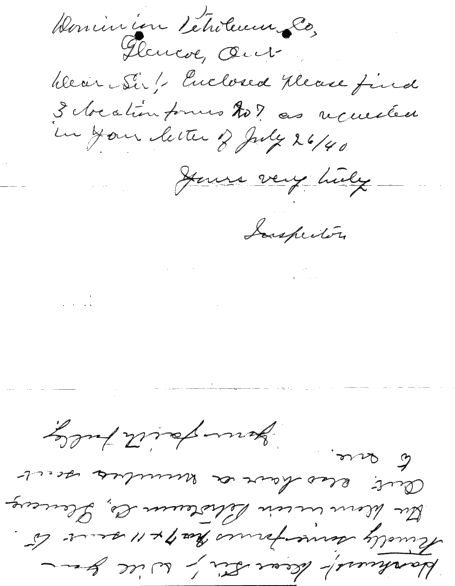 Dominion Petroleum Co,
Glencoe, Ont
Dear Sir! Enclosed please find
3 location forms 207 as requested
in your letter of July 26/40
Yours very truly
Inspector
Dear Sir! Will you
Kindly send forms No 7 & 11 sent to
the Dominion Petroleum Co, Glencoe
Ont. also have a number sent
to me.
Yours faithfully,